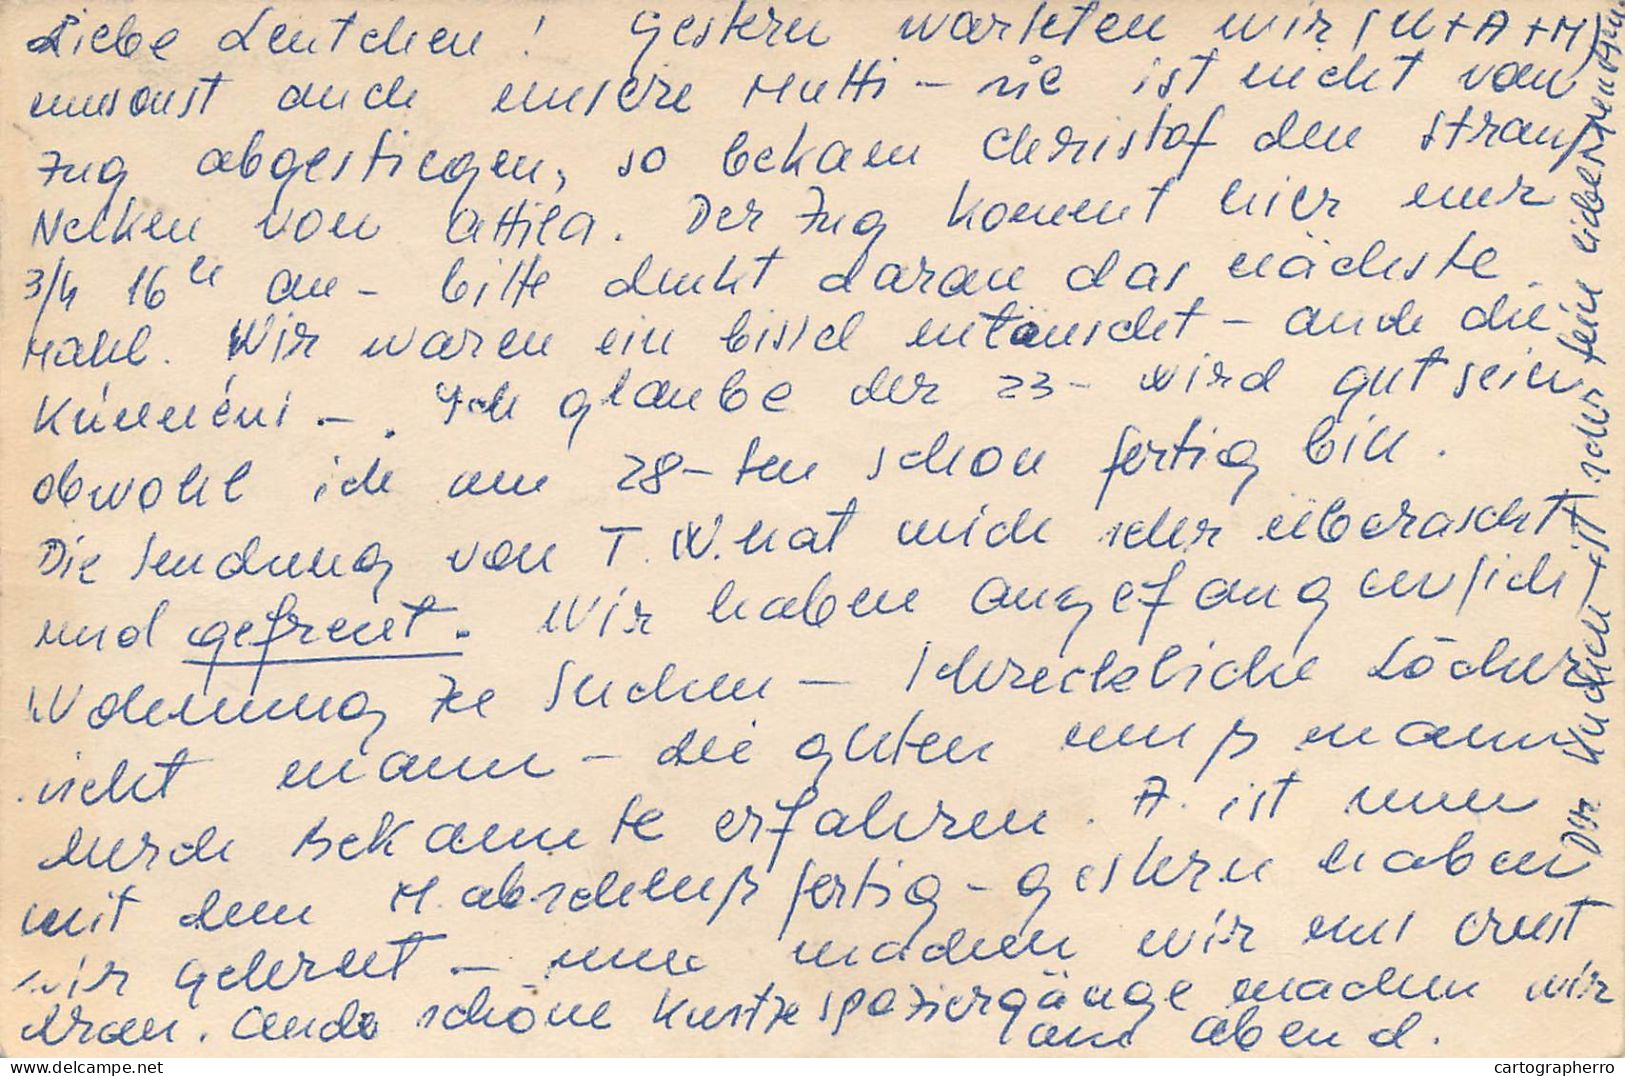 Liebe Leutchen! Gestern warteten wir (U+A+M)
umsonst auch unsere Mutti – sie ist nicht vom
Zug abgestiegen, so bekam Christof den Strauß
Nelken von Attila. Der Zug kommt hier nur
3/4 16 an – bitte denkt daran das nächste
Mahl. Wir waren ein bissel entäuscht – auch die
Künnéni –. Ich glaube der 23– wird gut sein
obwohl ich am 28–ten schon fertig bin.
Die Sendung von T.W. hat mich sehr überascht
und gefreut. Wir haben angefangen sich
Wohnung ze suchen – schreckliche Löcher
sieht mann – die guten muß mann
durch Bekannte erfahren. A. ist nun
mit dem M. abschluß fertig – gestern haben
wir gefreut – nun machen wir uns ernst
dran. Ande schöne kurtze spaziergänge machen wir
am abend.
Der Kuchen ist sehr fein
cartographerro